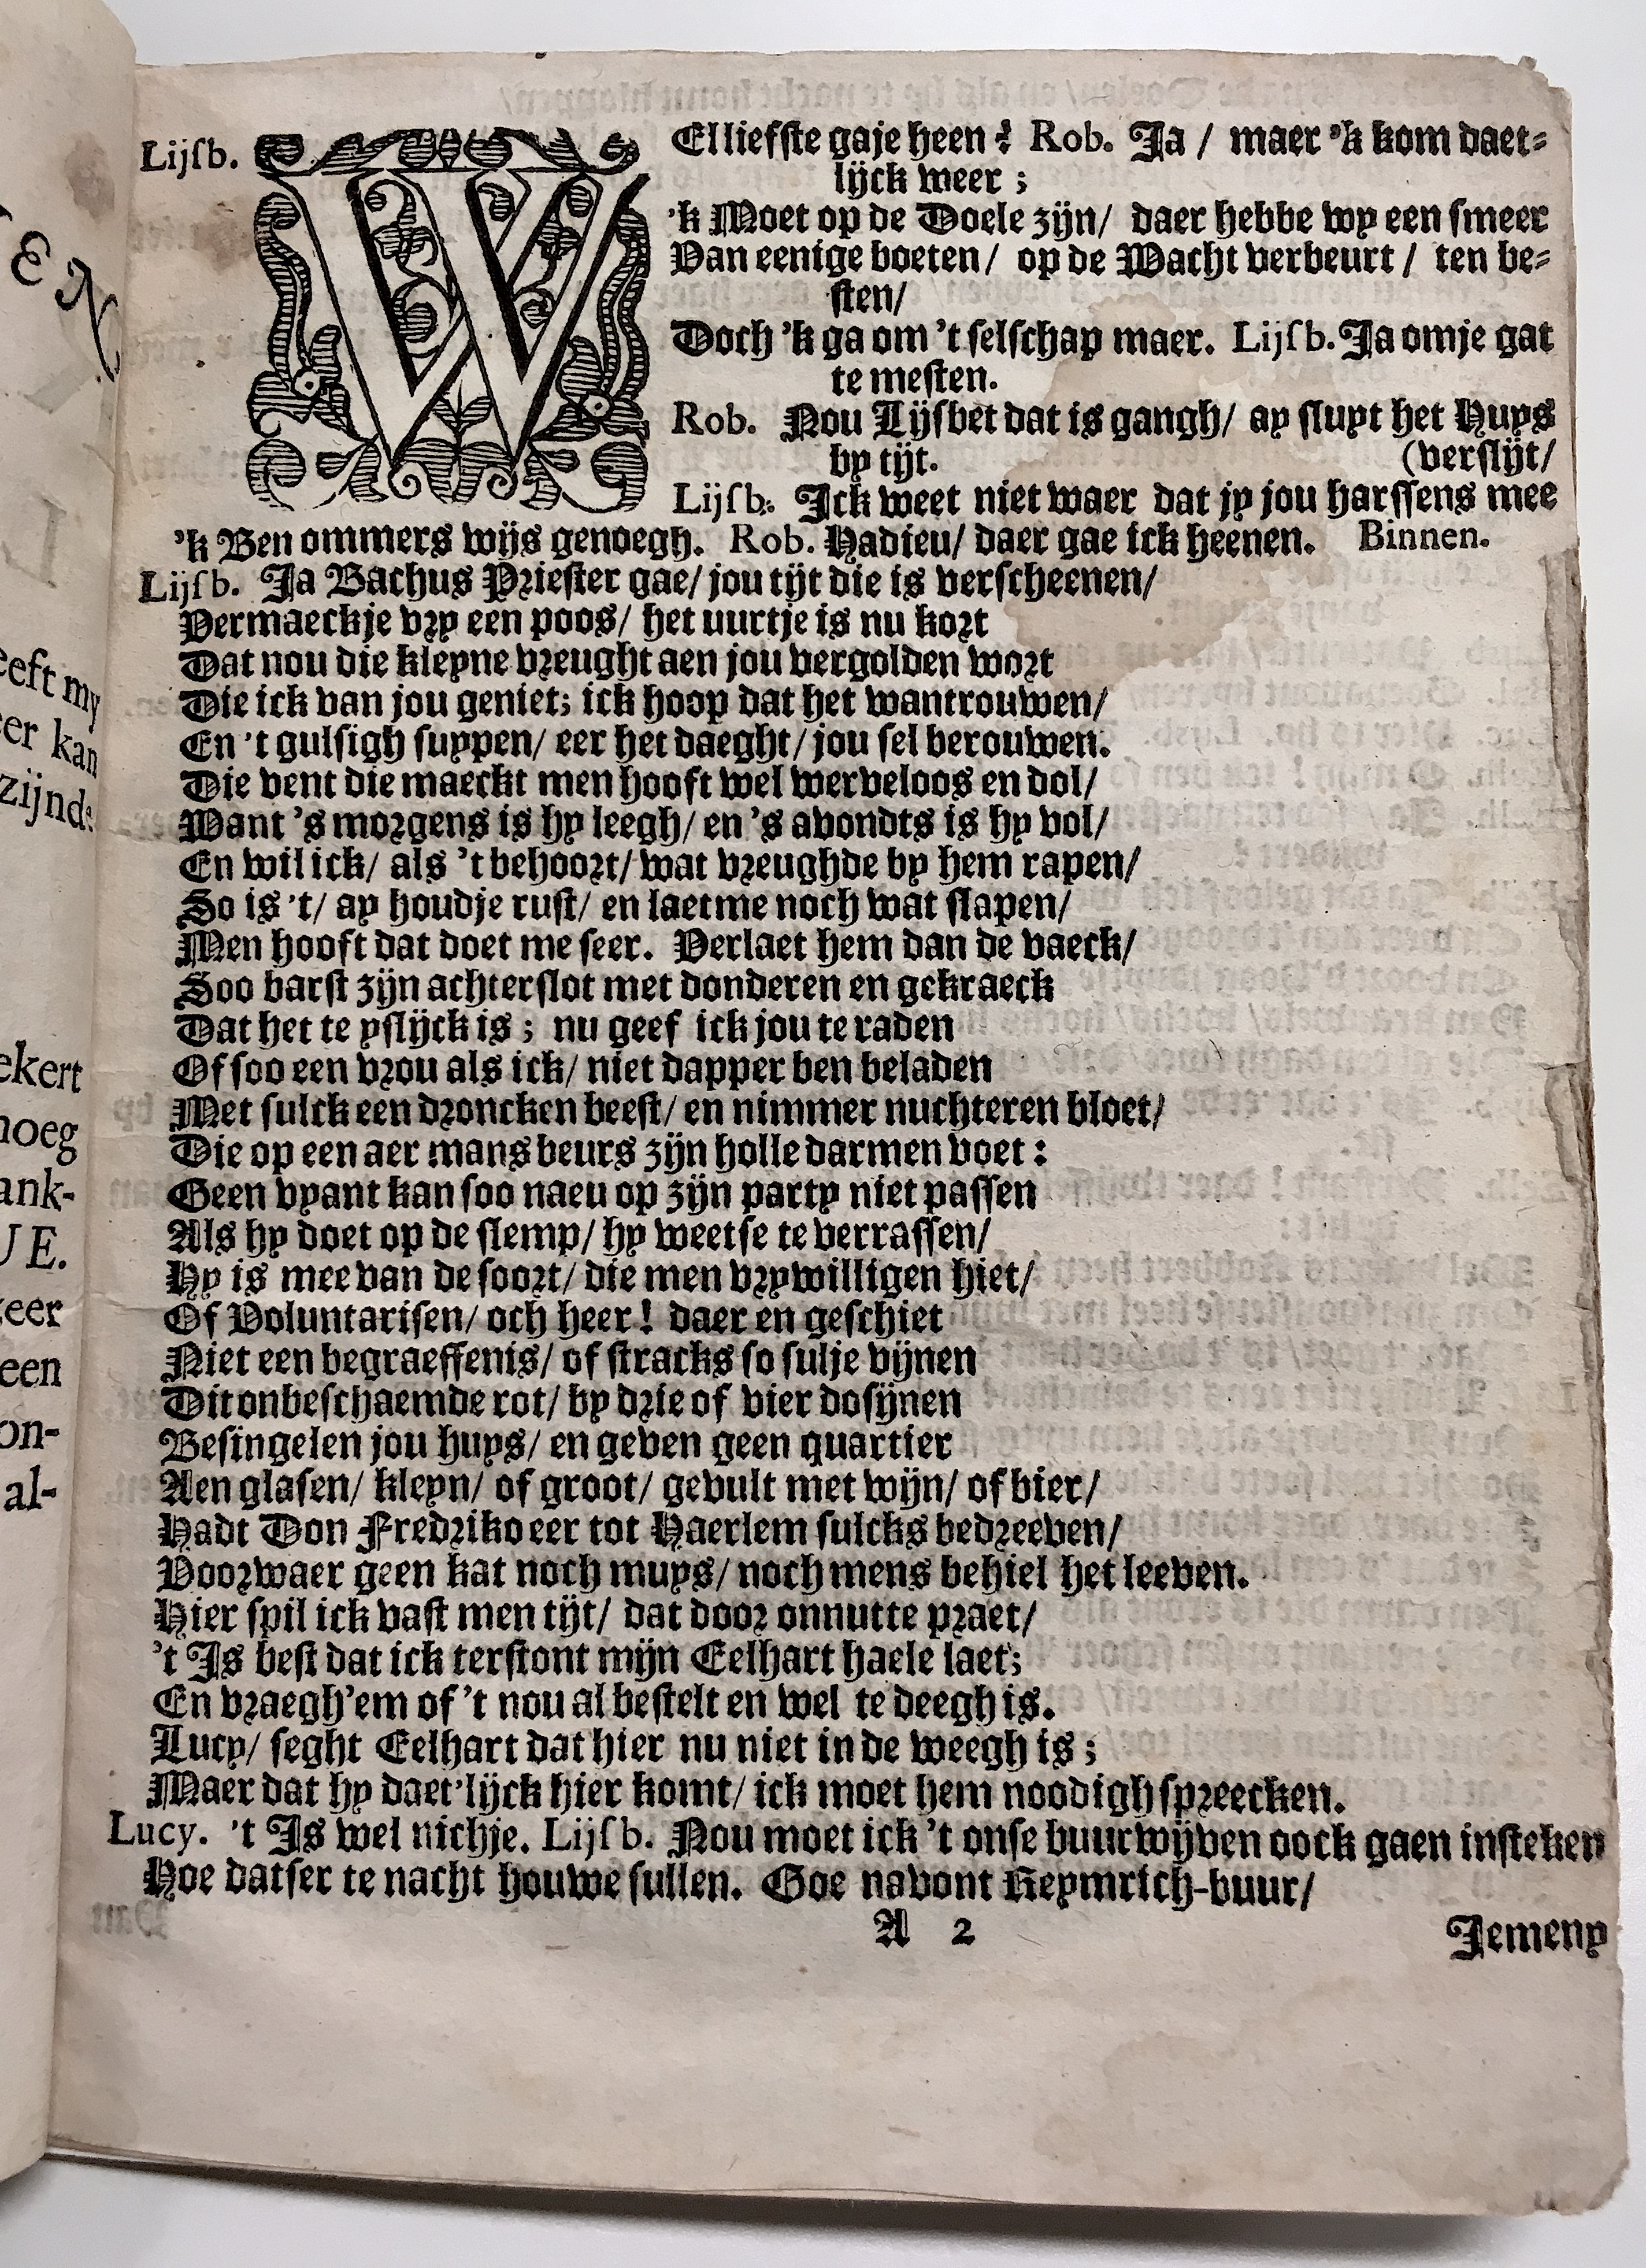 Lijsb. WEl liefste gaje heen? Rob. Ja / maer 'k kom daet-
lijck weer ;
'k Moet op de Doele zijn / daer hebbe wy een smeer
Van eenige boeten / op de Wacht verbeurt / ten be-
sten /
Doch 'k ga om 't selschap maer. Lijsb. Ja omje gat
te mesten.
Rob. Nou Lijsbet dat is gangh / ay sluyt het Huys
by tijt. (verslijt /
Lijsb. Ick weet niet waer dat jy jou harssens mee
'k Ben ommers wijs genoegh. Rob. Hadieu / daer gae ick heenen. Binnen.
Lijsb. Ja Bachus Priester gae / jou tijt die is verscheenen /
Vermaeckje vry een poos / het uurtje is nu kort
Dat nou die kleyne vreught aen jou vergolden wort
Die ick van jou geniet; ick hoop dat het wantrouwen /
En 't gulsigh suypen / eer het daeght / jou sel berouwen.
Die vent die maeckt men hooft wel werveloos en dol /
Want 's morgens is hy leegh / en 's avondts is hy vol /
En wil ick / als 't behoort / wat vreughde by hem rapen /
So is 't / ay houdje rust / en laetme noch wat slapen /
Men hooft dat doet me seer. Verlaet hem dan de vaeck /
Soo barst zijn achterslot met donderen en gekraeck
Dat het te yslijck is ; nu geef ick jou te raden
Of soo een vrou als ick / niet dapper ben beladen
Met sulck een droncken beest / en nimmer nuchteren bloet /
Die op een aer mans beurs zijn holle darmen voet :
Geen vyant kan soo naeu op zijn party niet passen
Als hy doet op de slemp / hy weetse te verrassen /
Hy is mee van de soort / die men vrywilligen hiet /
Of Voluntarisen / och heer ! daer en geschiet
Niet een begraeffenis / of stracks so sulje vijnen
Dit onbeschaemde rot / by drie of vier dosijnen
Besingelen jou huys / en geven geen quartier
Aen glasen / kleyn / of groot / gevult met wijn / of bier /
Hadt Don Fredriko eer tot Haerlem sulcks bedreeven /
Voorwaer geen kat noch muys / noch mens behiel het leeven.
Hier spil ick vast men tijt / dat door onnutte praet /
't Is best dat ick terstont mijn Eelhart haele laet;
En vraegh'em of 't nou al bestelt en wel te deegh is.
Lucy / seght Eelhart dat hier nu niet in de weegh is ;
Maer dat hy daet'lijck hier komt / ick moet hem noodigh spreecken.
Lucy. 't Is wel nichje. Lijsb. Nou moet ick 't onse buurwijven oock gaen insteken
Hoe datser te nacht houwe sullen. Goe navont Reymrich-buur /
A 2 Jemeny
eeft my
er kan
zijnde
ekert
noeg
ank-
U E.
eer
een
on-
al-